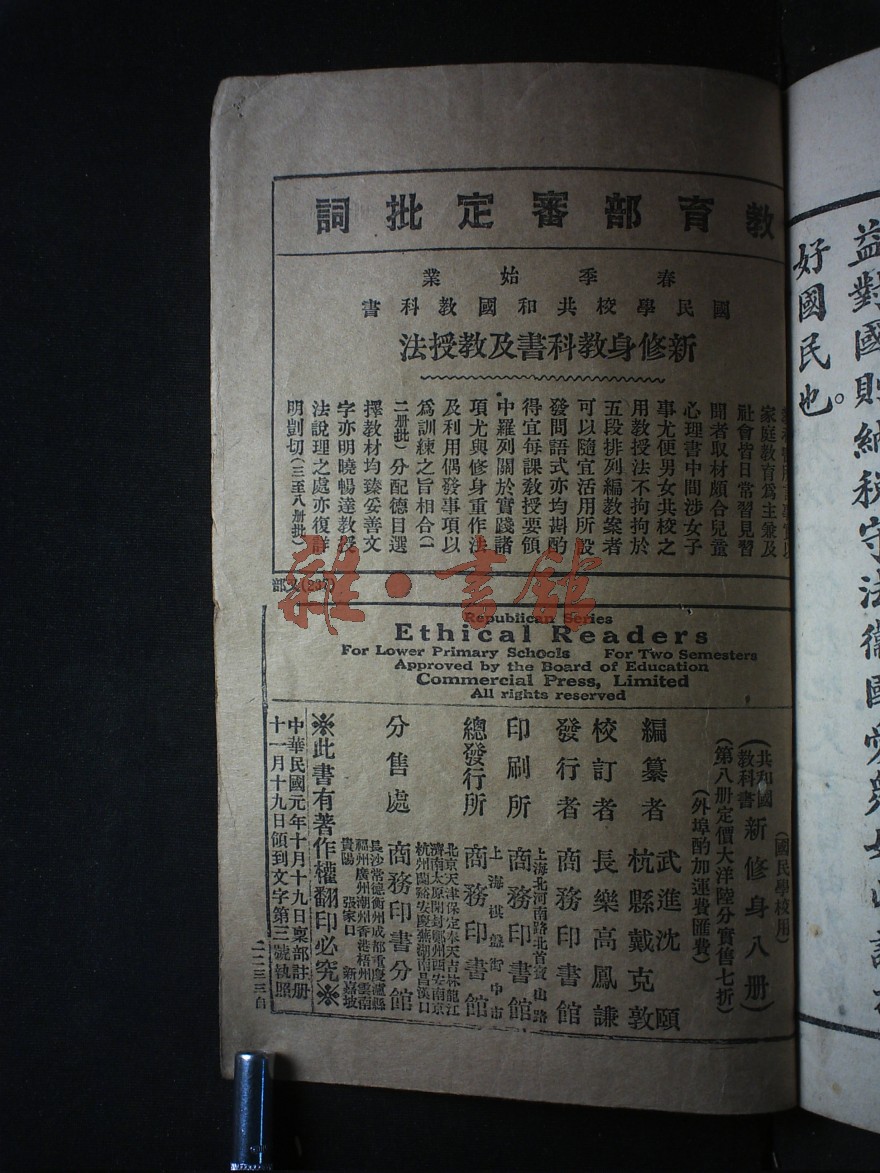 益對國則納稅守法衞國愛
好國民也。
教育部審定批詞
春季始業
國民學校共和國教科書
新修身教科書及教授法
家庭教育爲主兼及
社會皆日常習見習
聞者取材頗合兒童
心理書中間涉女子
事尤便男女共校之
用教授法不拘拘於
五段排列編教案者
可以隨宜活用所設
發問語式亦均斟酌
得宜每課教授要領
中羅列關於實踐諸
項尤與修身重作法
及利用偶發事項以
爲訓練之旨相合(一
二册批)分配德目選
擇教材均臻妥善文
字亦明曉暢達教授
法說理之處亦復詳
明剴切(三至八册批)
部文(237)
雜·書館
Republican Series
Ethical Readers
For Lower Primary Schools For Two Semesters
Approved by the Board of Education
Commercial Press, Limited
All rights reserved
(國民學校用)
(共和國教科書 新修身八册)
(第八册定價大洋陸分實售七折)
(外埠酌加運費匯費)
編纂者 武進沈頤 杭縣戴克敦
校訂者 長樂高鳳謙
發行者 商務印書館
印刷所 上海北河南路北首寶山路 商務印書館
總發行所 上海棋盤街中市 商務印書館
分售處 北京天津保定奉天吉林龍江
濟南太原開封鄭州西安南京
杭州蘭谿安慶蕪湖南昌漢口
商務印書分館
長沙常德衡州成都重慶瀘縣
福州廣州潮州香港梧州雲南
貴陽 張家口 新嘉坡
※此書有著作權翻印必究※
中華民國元年十月十九日稟部註册
十一月十九日領到文字第三號執照
二二三三自